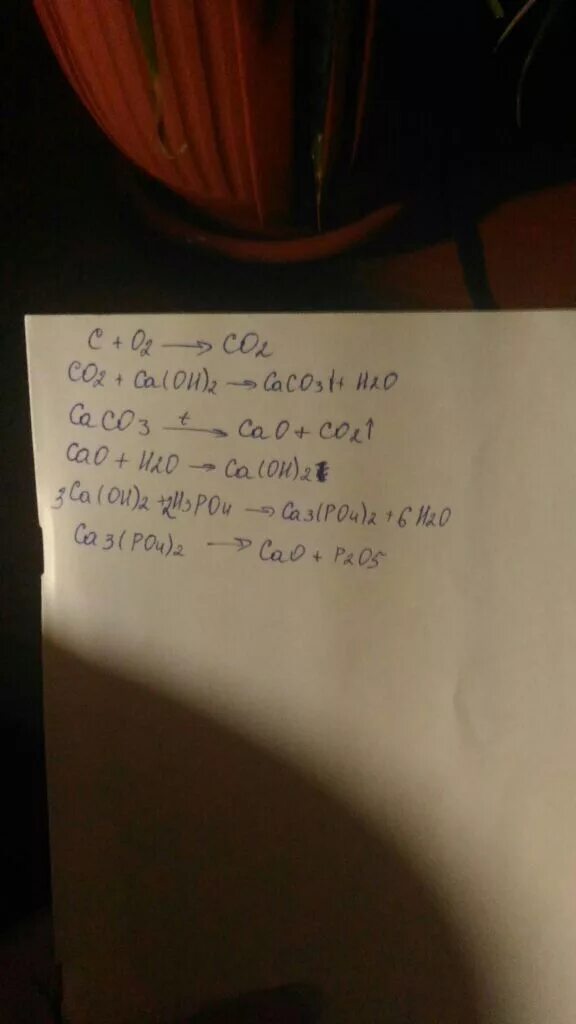 C + O2 → CO2
CO2 + Ca(OH)2 → CaCO3↓ + H2O
CaCO3 t→ CaO + CO2↑
CaO + H2O → Ca(OH)2
3Ca(OH)2 + 2H3PO4 → Ca3(PO4)2 + 6H2O
Ca3(PO4)2 → CaO + P2O5